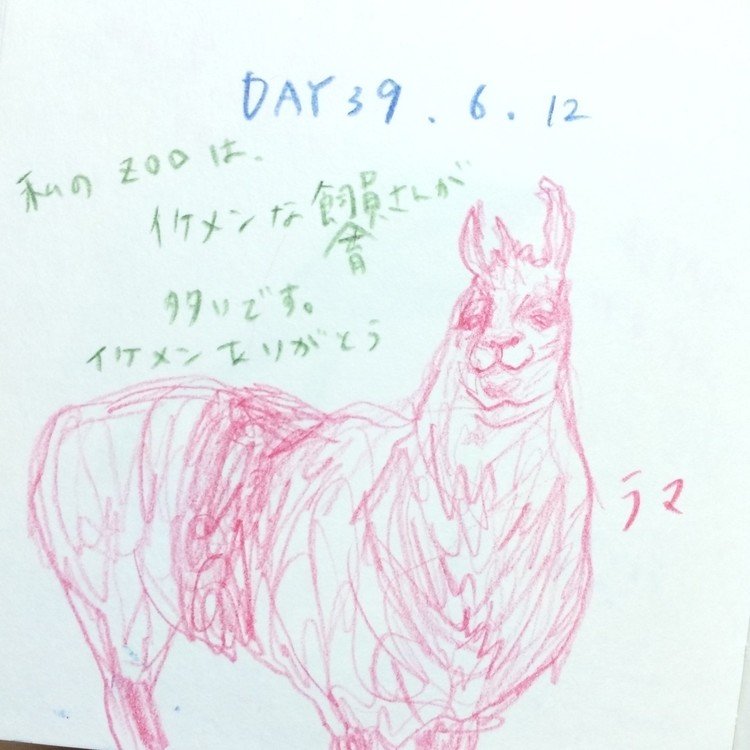 DAY 39. 6. 12
私の ZOO は、
イケメンな飼員さんが
育
多いです。
イケメンありがとう
ラマ